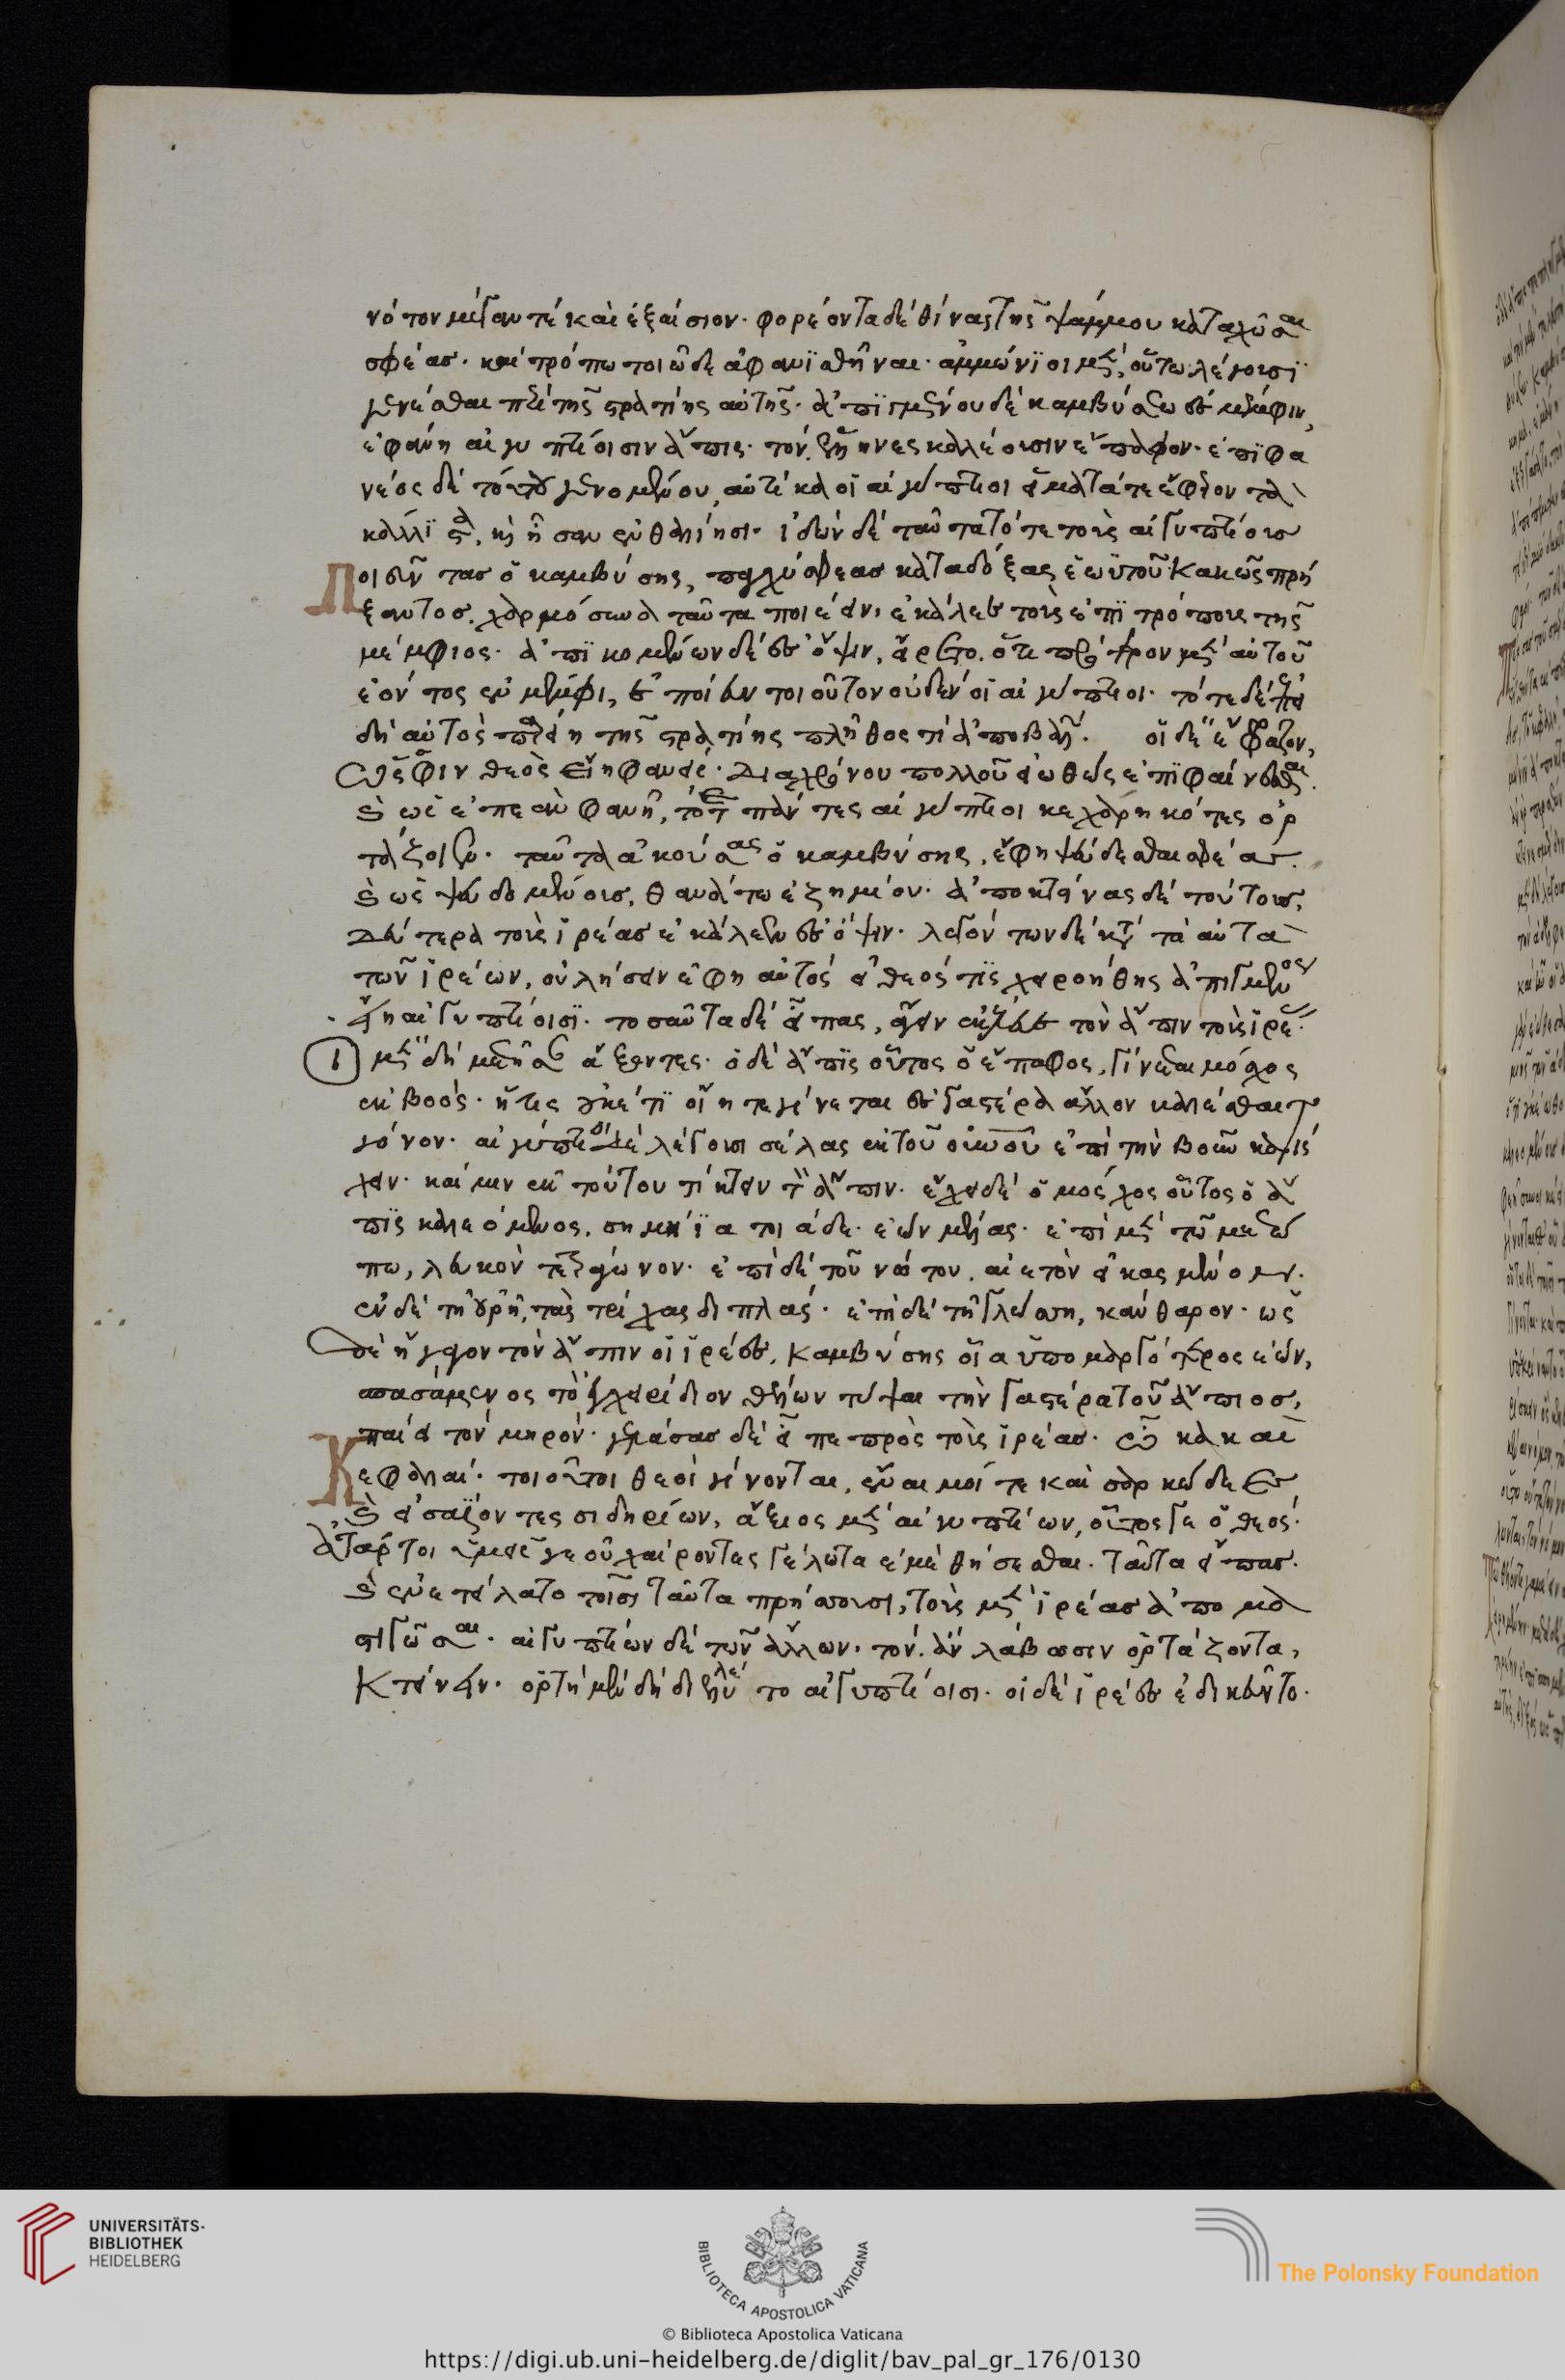 νότον μέγαν τὲ καὶ ἐξαίσιον· φορέοντα δὲ θίνας τῆς ψάμμου καταχῶσαι
σφέας· καὶ τρόπω τοιῶδε ἀφανϊσθῆναι· ἀμμώνϊοι μὲν, οὕτω λέγουσϊ
γενέσθαι περὶ τῆς στρατιῆς αὐτῆς· ἀπϊγμένου δὲ καμβύσεω ἐς μέμφιν,
ἐφάνη αἰγυπτίοισιν ἄπις· τὸν ἕλληνες καλέουσιν ἔπαφον· ἐπϊφα
νέος δὲ τούτου γενομένου, αὐτίκα οἱ αἰγύπτιοι εἵματά τε ἐφόρεον τὰ
κάλλϊστα, καὶ ἦσαν ἐν θαλίησι· ἰδὼν δὲ ταῦτα τότε τοὺς αἰγυπτίους
ποιεῦντας ὁ καμβύσης, πάγχυ σφεας καταδόξας ἑωυτοῦ κακῶς πρή
ξαντος. χαρμόσυνα ταῦτα ποιέειν, ἐκάλεσε τοὺς ἐπϊτρόπους τῆς
μέμφιος· ἀπϊκομένων δὲ ἐς ὄψιν, εἴρετο. ὅτι πρότερον μὲν αὐτοῦ
ἐόντος ἐν μέμφι, ἐποίευν τοιοῦτον οὐδὲν οἱ αἰγύπτιοι· τότε δὲ ἐπεὶ
δὴ αὐτὸς παρείη τῆς στρατιῆς πλῆθός τι ἀποβαλών. οἱ δὲ ἔφραζον,
ὥς σφιν θεὸς εἴη φανείς· διὰ χρόνου πολλοῦ εἰωθὼς ἐπϊφαίνεσθαι.
καὶ ὡς ἐπεὰν φανῆ, τότε πάντες αἰγύπτιοι κεχαρηκότες ὁρ
τάζοιεν· ταῦτα ἀκούσας ὁ καμβύσης, ἔφη ψεύδεσθαι σφέας.
καὶ ὡς ψευδομένους, θανάτω ἐζημίου· ἀποκτείνας δὲ τούτους,
δεύτερα τοὺς ἱρέας ἐκάλεεν ἐς ὄψιν· λεγόντων δὲ κατὰ τὰ αὐτὰ
τῶν ἱρέων, οὐ λήσειν ἔφη αὐτὸς εἰ θεός τϊς χειροήθης ἀπιγμένος
εἴη αἰγυπτίοισϊ· τοσαῦτα δὲ εἴπας, ἄγειν ἐκέλευε τὸν ἄπιν τοὺς ἱρέας.
οἱ μὲν δὴ μετήϊσαν ἄξοντες· ὁ δὲ ἄπϊς οὗτος ὁ ἔπαφος, γίνεται μόσχος
ἐκ βοὸς· ἥτις οὐκέτϊ οἵη τε γίνεται ἐς γαστέρα ἄλλον βαλέσθαι
γόνον· αἰγύπτιοι δὲ λέγουσι σέλας ἐκ τοῦ οὐρανοῦ ἐπὶ τὴν βοῦν κατίς
χειν· καί μιν ἐκ τούτου τίκτειν τὸν ἄπιν· ἔχει δὲ ὁ μόσχος οὗτος ὁ ἄ
πϊς καλεόμενος, σημήϊα τοιάδε· ἐὼν μέλας· ἐπὶ μὲν τῶ μετώ
πω, λευκὸν τετράγωνον· ἐπὶ δὲ τοῦ νώτου, αἰετὸν εἰκασμένον·
ἐν δὲ τῆ οὐρῆ, τὰς τρίχας διπλάς· ἐπὶ δὲ τῆ γλώσση, κάνθαρον· ὡς
δὲ ἤγαγον τὸν ἄπιν οἱ ἱρέες, καμβύσης οἷα ὑπομαργότερος ἐών,
σπασάμενος τὸ ἐγχειρίδιον θέλων τύψαι τὴν γαστέρα τοῦ ἄπιος,
παίει τὸν μηρόν· γελάσας δὲ εἶπε πρὸς τοὺς ἱρέας· ὦ κακαὶ
κεφαλαί· τοιοῦτοι θεοὶ γίνονται, ἔναιμοί τε καὶ σαρκώδεες
καὶ ἐπαΐοντες σιδηρίων, ἄξιος μὲν αἰγυπτίων, οὗτος γε ὁ θεός·
ἀτάρ τοι ὑμεῖς γε οὐ χαίροντες γέλωτα ἐμὲ θήσεσθαι. ταῦτα εἴπας.
καὶ ἐνετείλατο τοῖσι ταῦτα πρήσσουσι, τοὺς μὲν ἱρέας ἀπομα
στιγῶσαι. αἰγυπτίων δὲ τῶν ἄλλων. τὸν ἂν λάβωσιν ὁρτάζοντα,
κτείνειν. ὁρτὴ μὲν δὴ διελέλυτο αἰγυπτίοισι. οἱ δὲ ἱρέες ἐδικεῦντο.
UNIVERSITÄTS-
BIBLIOTHEK
HEIDELBERG
BIBLIOTHECA APOSTOLICA VATICANA
The Polonsky Foundation
© Biblioteca Apostolica Vaticana
https://digi.ub.uni-heidelberg.de/diglit/bav_pal_gr_176/0130